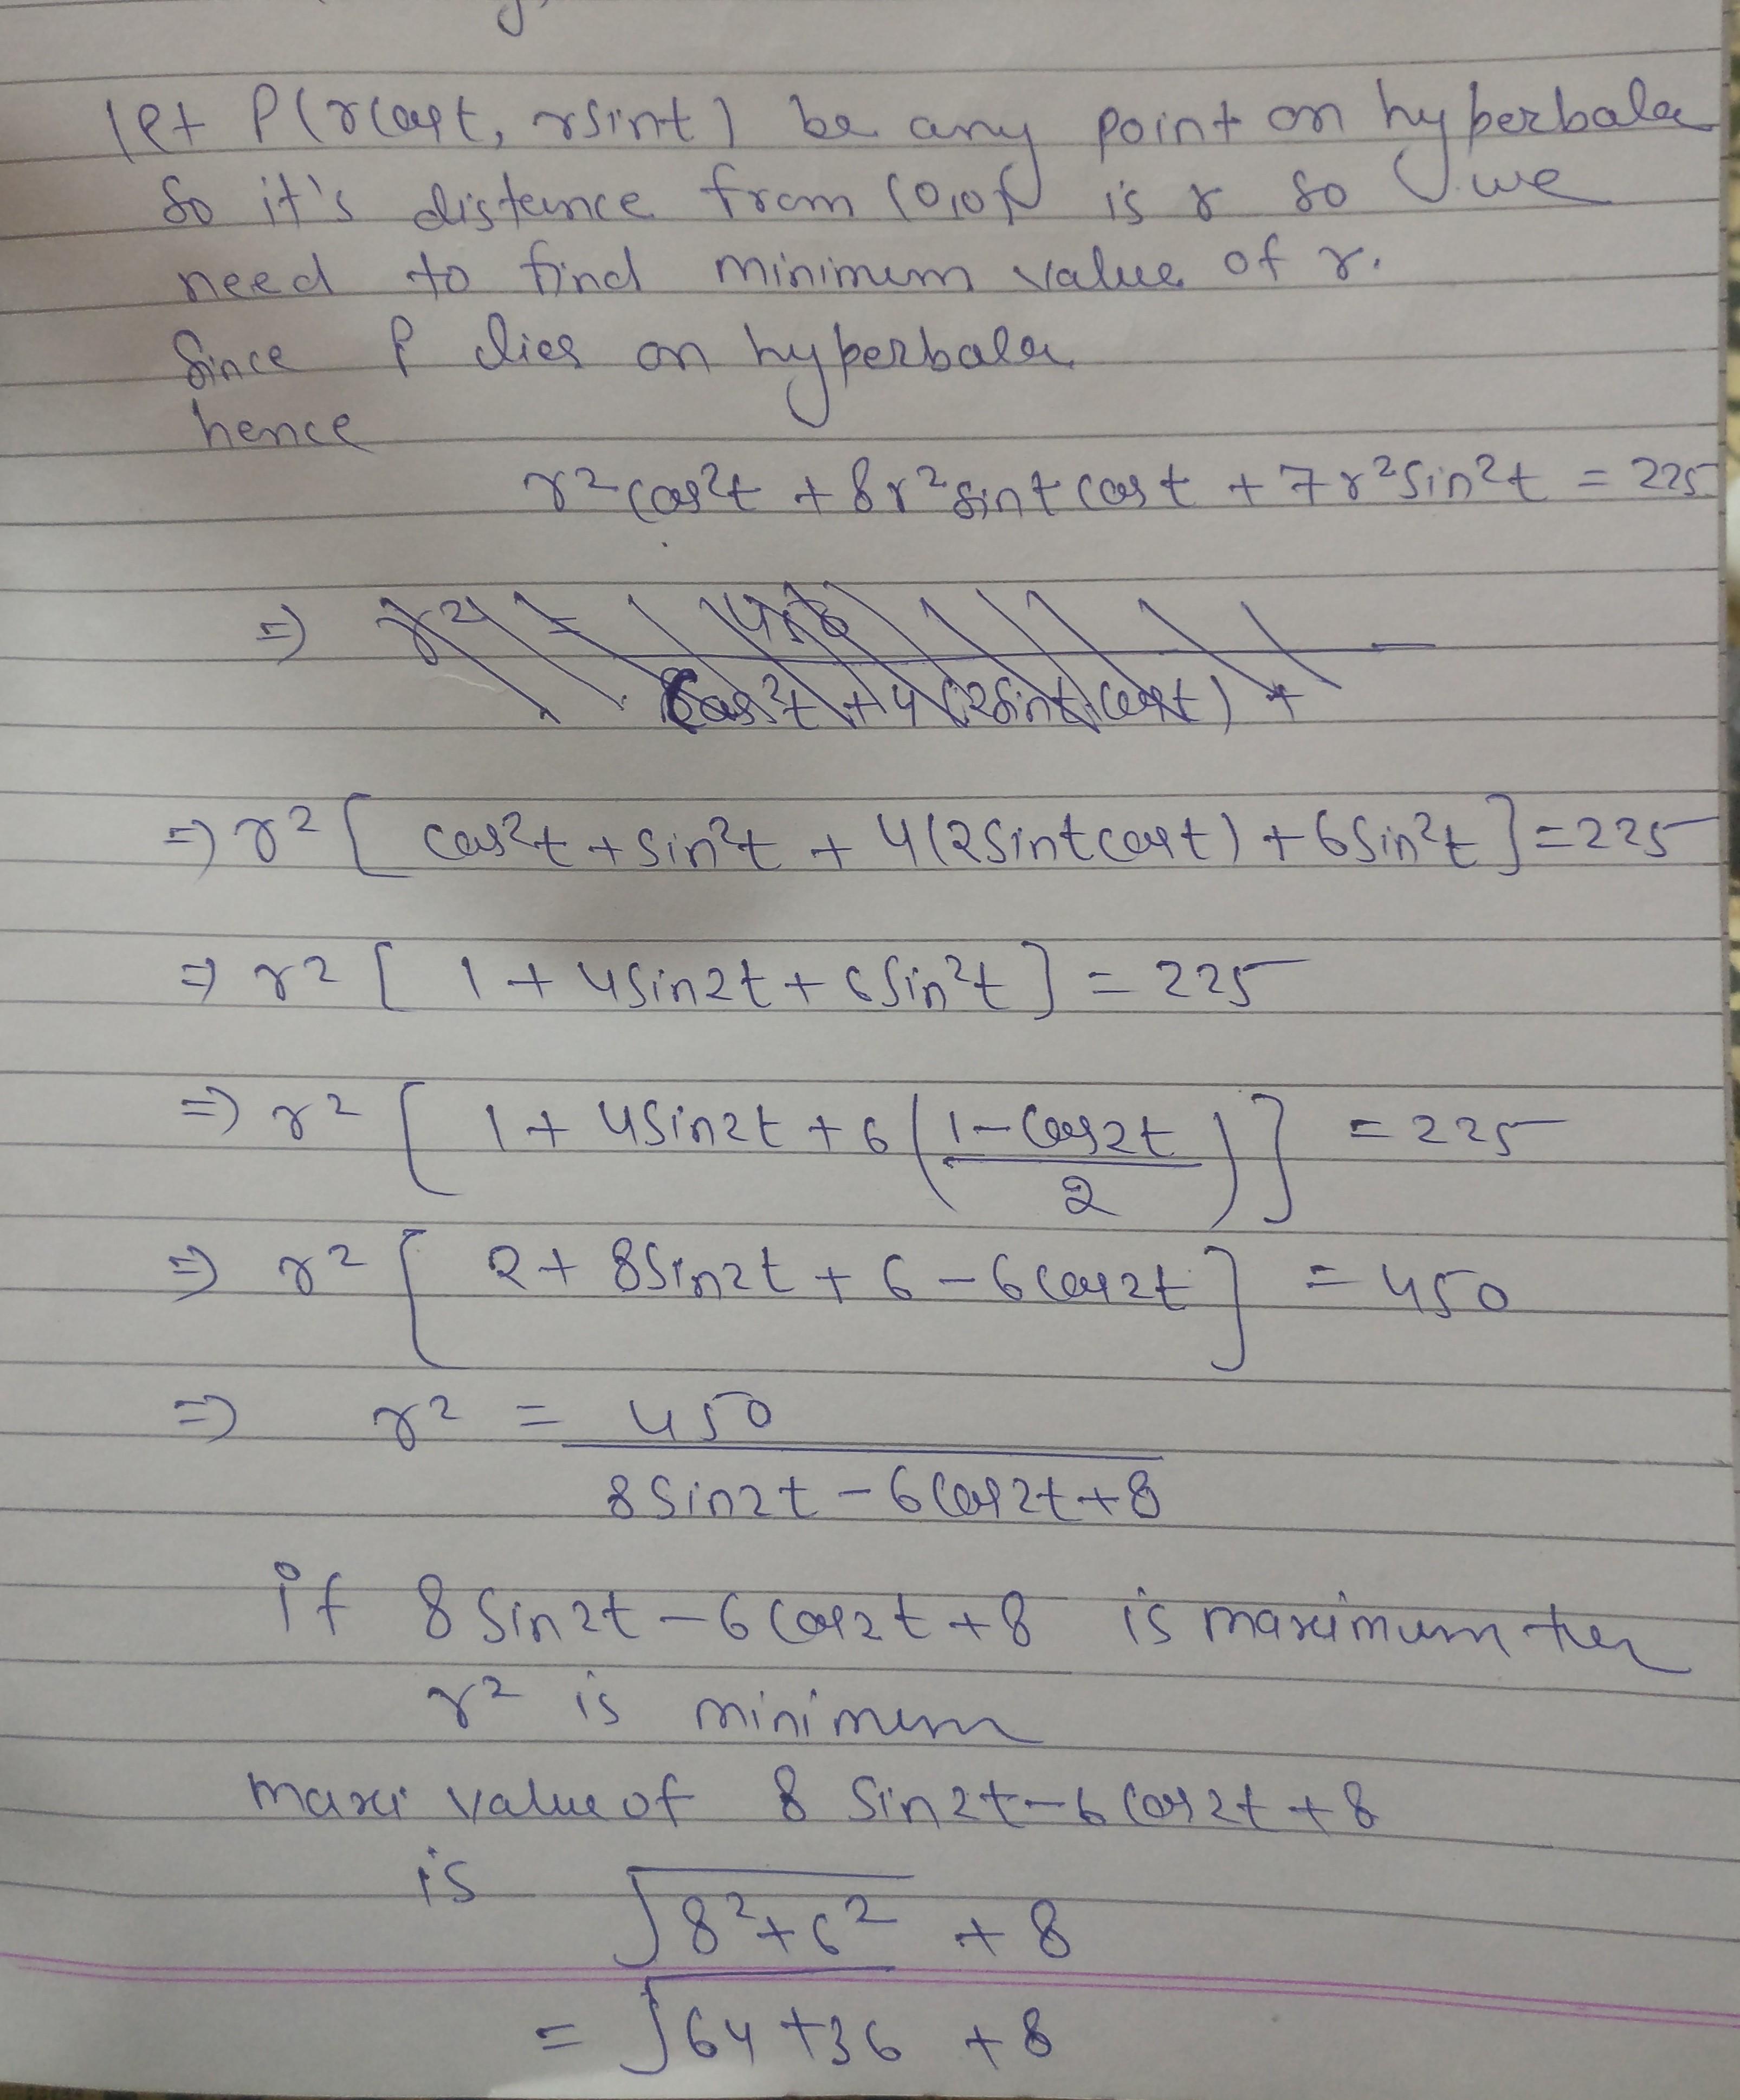 let P(rcost, rsint) be any point on hyperbola
So it's distance from (0,0) is r so we
need to find minimum value of r.
Since P lies on hyperbola
hence
r²cos²t + 8r²sintcost + 7r²sin²t = 225
⇒ r² [ cos²t + sin²t + 4(2sintcost) + 6sin²t ] = 225
⇒ r² [ 1 + 4sin2t + 6sin²t ] = 225
⇒ r² [ 1 + 4sin2t + 6 ( (1-cos2t)/2 ) ] = 225
⇒ r² [ 2 + 8sin2t + 6 - 6cos2t ] = 450
⇒ r² = 450
8sin2t - 6cos2t + 8
if 8sin2t - 6cos2t + 8 is maximum then
r² is minimum
max value of 8 sin2t - 6cos2t + 8
is √(8²+6²) + 8
= √(64+36) + 8